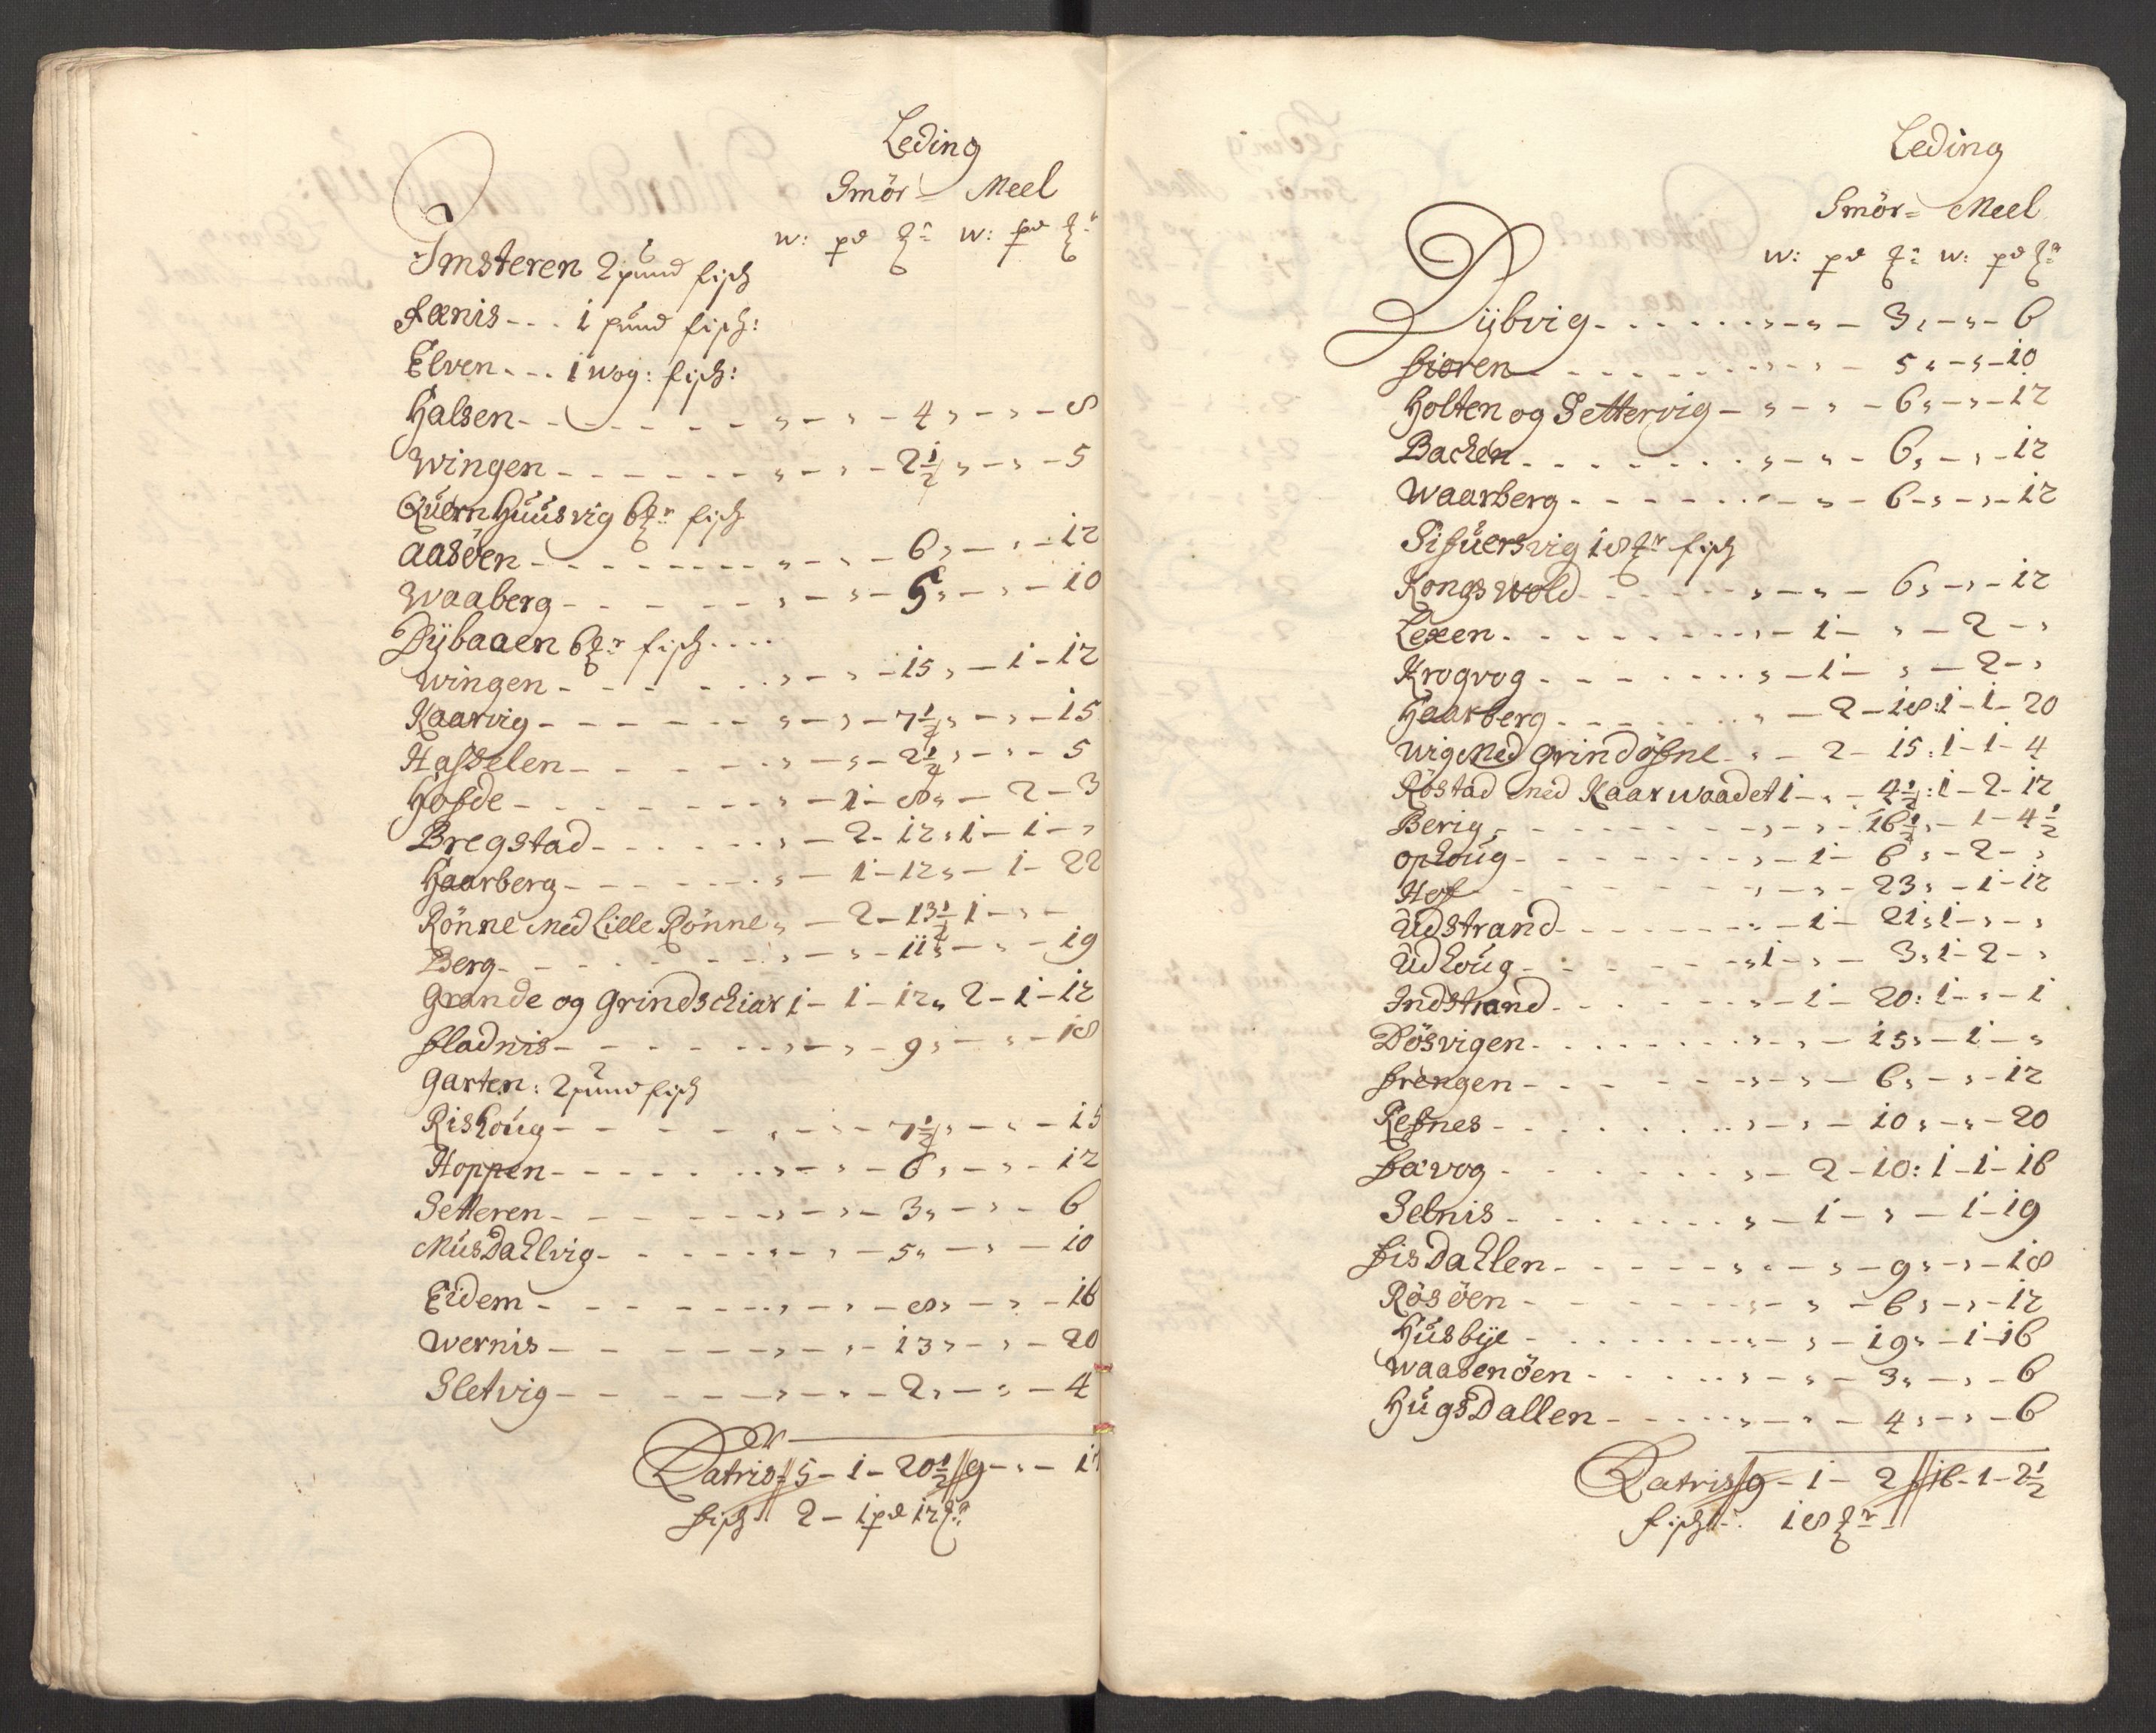 Leding
Smör = Meel
w: pd ℔r w: pd ℔r
Imsteren 2 pund fisch
Fænis - - - 1 pund fisch:
Elven - - - 1 wog: fisch:
Halsen - - - - - - - „ - „ - 4 „ - „ - 8
Wingen - - - - - - - „ - „ - 2½ „ - „ - 5
Quernhuusvig 6 ℔r fisch
Aasöen - - - - - - - - „ - „ - 6 „ - „ - 12
Waaberg - - - - - - „ - „ - 5 „ - „ - 10
Dybaaen 6 ℔r fisch - - - -
Wingen - - - - - - - „ - „ - 15 „ - 1 - 12
Kaarvig - - - - - - - „ - „ - 7½ „ - „ - 15
Hasselen - - - - - - „ - „ - 2½ „ - „ - 5
Hofde - - - - - - - - „ - 1 - 8 „ - 2 - 3
Bregstad - - - - - - „ - 2 - 12 : 1 - 1 - „
Haarberg - - - - - - - „ - 1 - 12 „ - 1 - 22
Rönne med Lille Rönne „ - 2 - 13½ 1 - „ -
Berg - - - - - - - - „ - „ - 11 „ - „ - 19
Grande og Grindschiar 1 - 1 - 12 „ 2 - 1 - 12
Fladnis - - - - - - - „ - „ - 9 „ - „ - 18
Garten : 2 pund fisch
Rishoug - - - - - - - „ - „ - 7½ „ - „ - 15
Hoppen - - - - - - - „ - „ - 6 „ - „ - 12
Setteren - - - - - - „ - „ - 3 „ - „ - 6
Musdahlvig - - - - - „ - „ - 5 „ - „ - 10
Eidem - - - - - - - „ - „ - 8 „ - „ - 16
Wernis - - - - - - „ - „ - 13 „ - „ - 20
Sletvig - - - - - - „ - „ - 2 „ - „ - 4
Latris // 5 - 1 - 20½ // 9 - „ - 17
Fisch 2 - 1 pd 12 ℔r
Leding
Smör = Meel
w: pd ℔r w: pd ℔r
Dybvig - - - - - - „ - „ - 3 „ - „ - 6
Fioren - - - - - - - „ - „ - 5 „ - „ - 10
Holten og Settervig - „ - „ - 6 „ - „ - 12
Bachen - - - - - - - „ - „ - 6 „ - „ - 12
Waarberg - - - - - - „ - „ - 6 - „ - „ - 12
Sifuersvig 18 ℔r fisch
Kongswold - - - - - - „ - „ - 6 „ - „ - 12
Lexen - - - - - - - - „ - 1 - „ - 2 - „
Krogvog - - - - - - - „ - 1 - „ - 2 - „
Haarberg - - - - - - - „ - 2 - 18 : 1 - 1 - 20
Wig med Grindöfne - „ - 2 - 15 : 1 - 1 - 4
Röstad med Kaarwaadet 1 - „ - 4½ : 1 - 2 - 12
Berig - - - - - - - - „ - „ - 16½ „ - 1 - 4½
Ophoug - - - - - - - „ - 1 - 6 „ - 2 - „
Hof - - - - - - - - - „ - „ - 23 „ - 1 - 12
Udstrand - - - - - - - „ - 1 - 21 „ 1 - „ - „
Udhoug - - - - - - - „ 1 - „ - 3 „ 1 - 2 - „
Indstrand - - - - - - „ - 1 - 20 : 1 - „ - 1
Dösvigen - - - - - - - „ - „ - 15 „ - 1 - „
Frengen - - - - - - - „ - „ - 6 „ - „ - 12
Refnes - - - - - - - - „ - „ - 10 „ - „ - 20
Fævog - - - - - - - - „ - 2 - 10 : 1 - 1 - 16
Selnis - - - - - - - - „ - 1 - „ - 1 - 19
Fisdahlen - - - - - - „ - „ - 9 „ - „ - 18
Rösöen - - - - - - - „ - „ - 6 „ - „ - 12
Husbye - - - - - - - „ - „ - 19 „ - 1 - 16
Waasenöen - - - - - - „ - „ - 3 „ - „ - 6
Hugsdallen - - - - - - „ - „ - 4 „ - „ - 6
Latris // 9 - 1 - 2 // 16 - 1 - 2½
Fisch - - 18 ℔r -